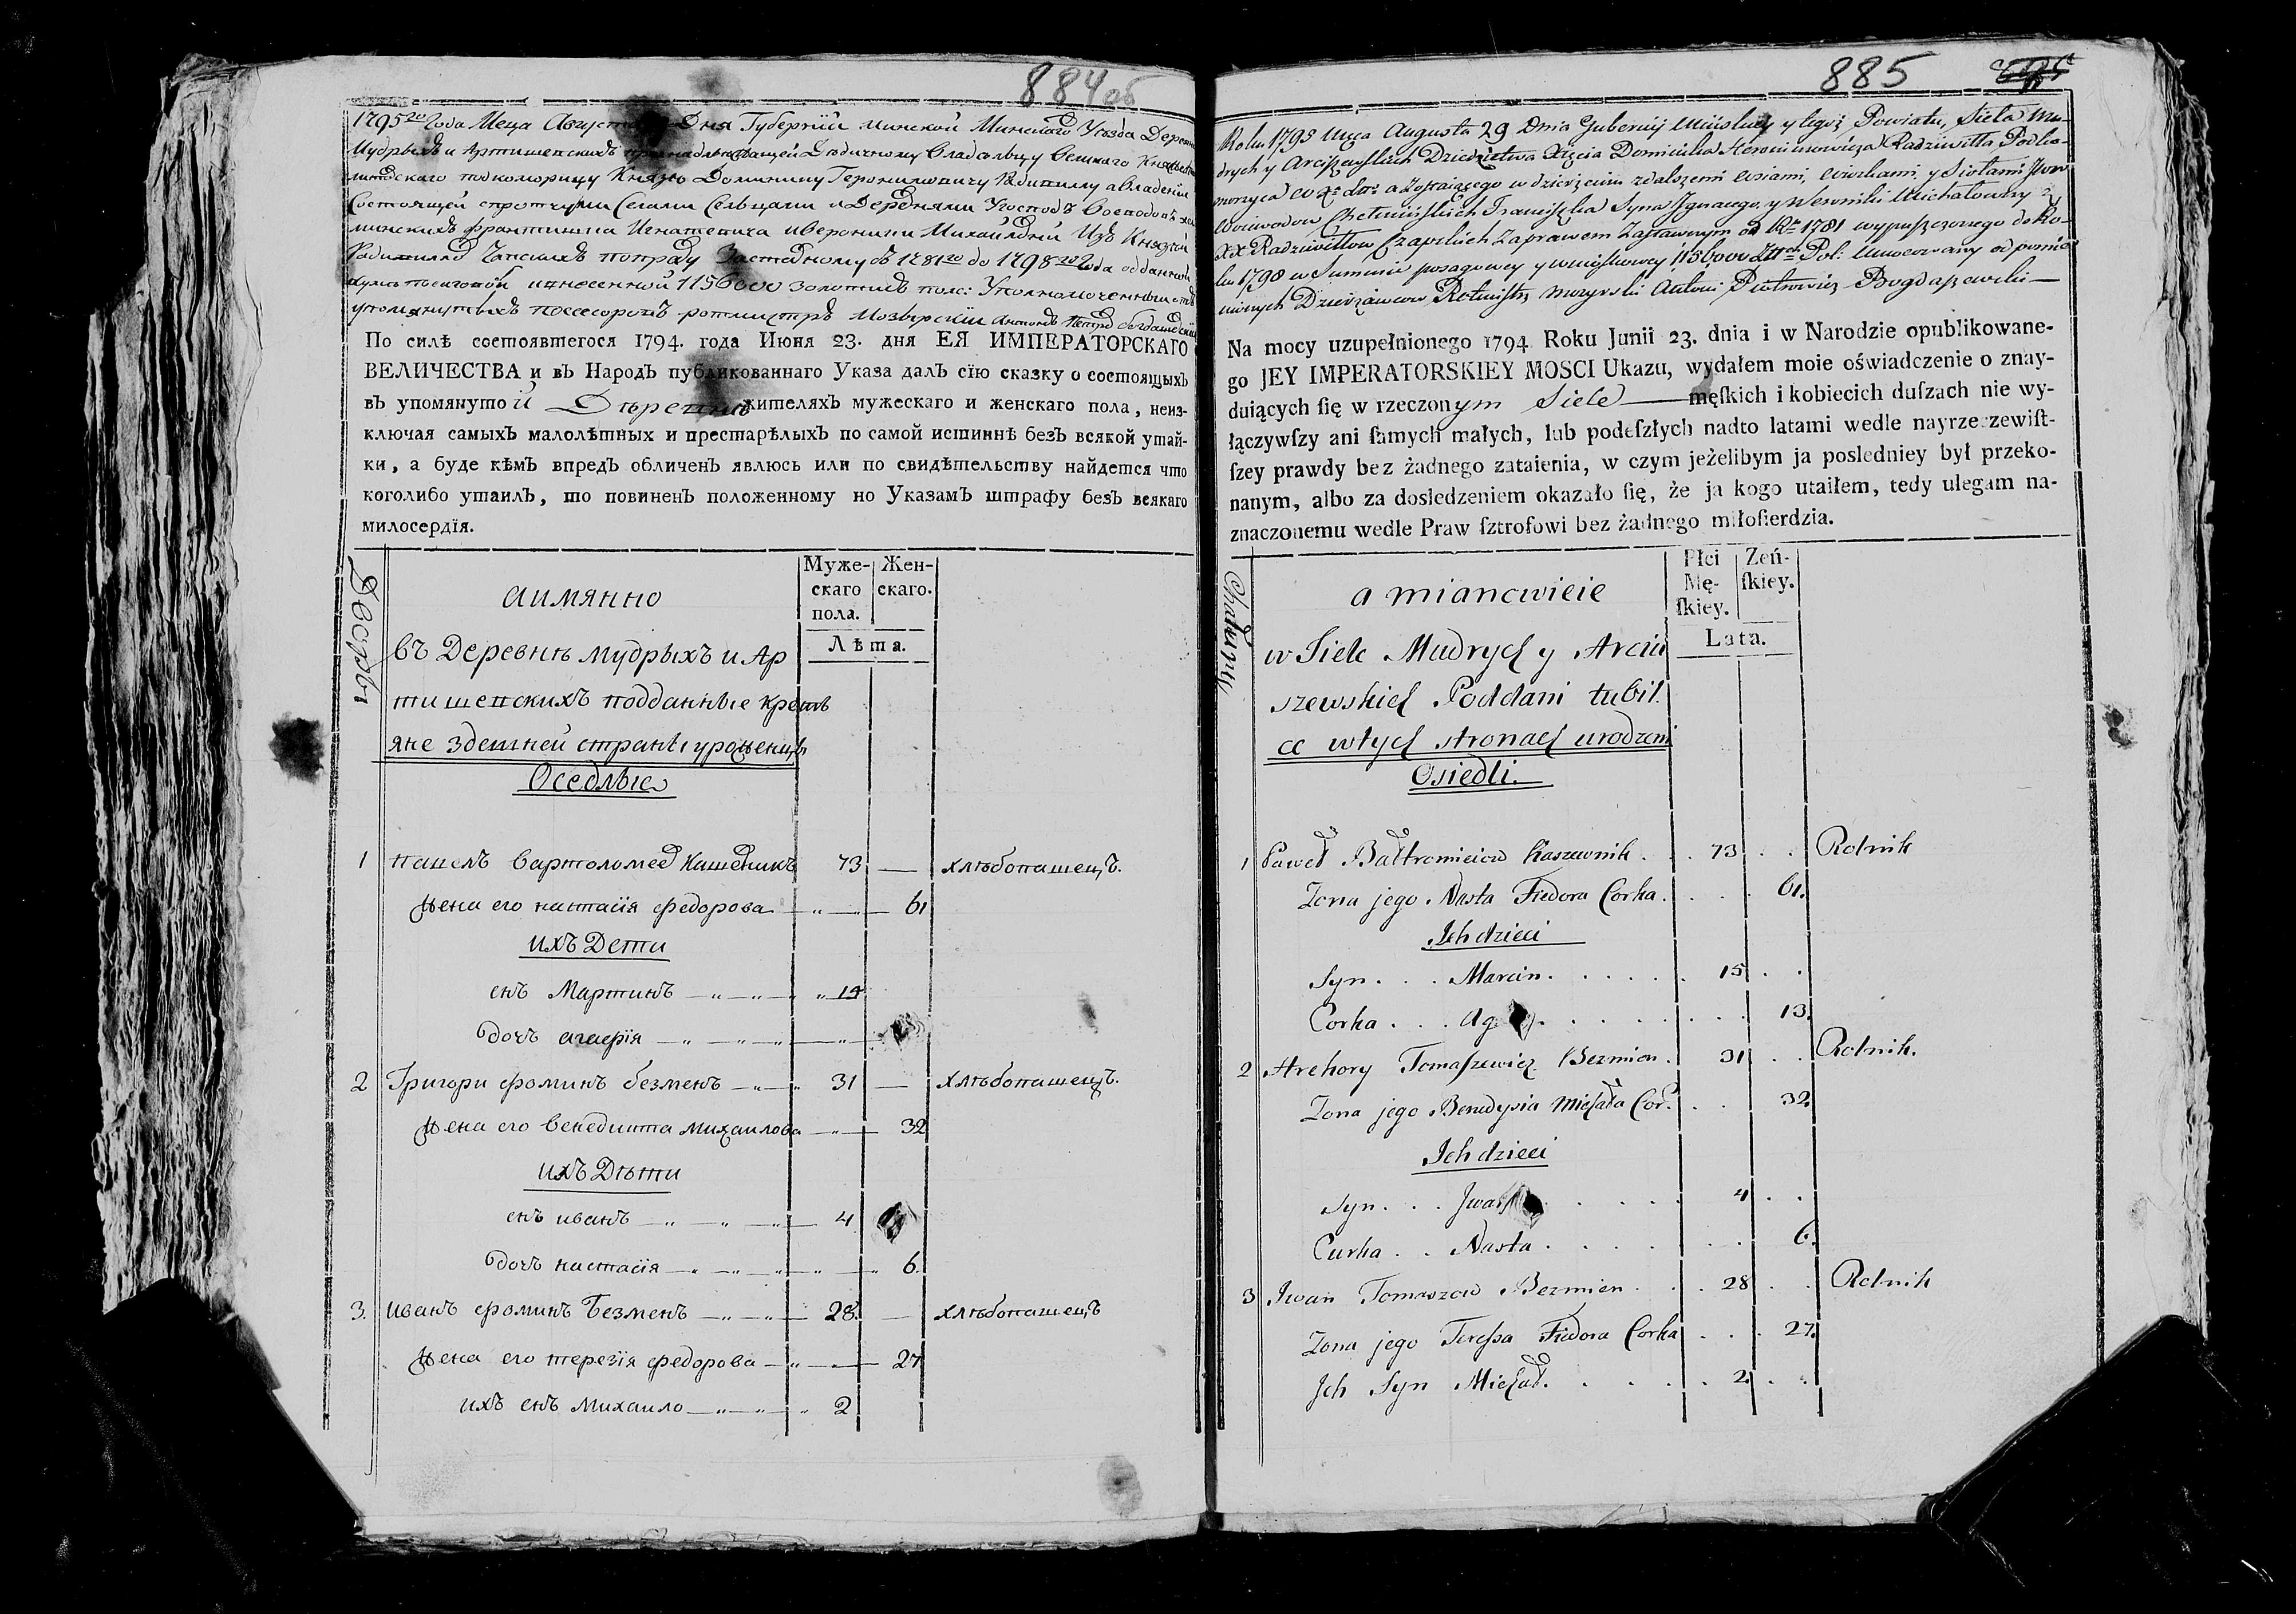 884об
1795го Года Меца Августа Дня Губернїи Минской Минскаго Уезда Деревни
Мудрыхъ и Артишевскихъ принадлежащей Дедичному Владельцу Великого Княжества
Литовскаго подкоморицу Князю Доминику Геронимовичу Радивилу а владении
Состоящей спротчими Селами Сельцами и Деревнями Угосподъ
минскихъ Франтишка Игнатевича и Вероники Михайловни Изъ Князей
Радивиллов Чапскихъ по праву Заставному въ 1781го до 1798го Года отданной
внесенной 1156000 золотихъ пол: Уполномоченный отъ
упомянутыхъ посессоровъ ротмистръ Мозырскїи Антонъ
По силѣ состоявшегося 1794. года Июня 23. дня ЕЯ ИМПЕРАТОРСКАГО
ВЕЛИЧЕСТВА и въ Народъ публикованнаго Указа далъ сїю сказку о состоящыхъ
въ упомянутой Деревни жителяхъ мужескаго и женскаго пола, неиз-
ключая самыхъ малолѣтныхъ и престарѣлыхъ по самой истиннѣ безъ всякой утай-
ки, а буде кѣмъ впредъ обличенъ явлюсь или по свидѣтельству найдется что
коголибо утаилъ, то повиненъ положенному по Указамъ штрафу безъ всякаго
милосердїя.
Дворы
аимянно
Муже-
скаго
пола.
Жен-
скаго.
Лѣта.
въ Деревнѣ Мудрыхъ и Ар
тишевскихъ подданные крѣсть
яне здешней странѣ уроженцы
Оседлые
1 павелъ Вартоломеев Кашевникъ 73 — хлѣбопашецъ.
жена его настасїя федорова 61
ихъ Дети
снъ Мартинъ 15
дочъ агаѳїя
2 Григори фоминъ безменъ 31 — хлѣбопашецъ.
жена его венедикта михаилова 32
ихъ Дѣти
снъ иванъ 4
дочъ настасїя 6.
3. иванъ фоминъ безменъ 28. — хлѣбопашецъ
жена его терезїя федорова 27
ихъ снъ михаило 2
885
Roku 1795 Mca Augusta 29 Dnia Gubernij Minskiey y tegoż Powiatu, Sieła Mu-
drych y Arciszewskich Dziedzictwa Xięcia Dominika Hieronimowicza Radziwiłła Podko-
morzyca W. X. Litt: a Zostaiącego w dzierżeniu zdalszemi wsiami, y Siołami
Woiewodow Chełmińskich Franciszka Syna Ignacego y Weroniki Michałowny z
XX Radziwiłłow Czapskich Zaprawem Zastawnym od Rku 1781 wypuszczonego do Ro-
ku 1798 w Summie posagowey y wniosłowey 1156000 Złł Pol: Umocowany od pomie-
nionych Dzierżawcow Rotmistrz Mozyrski Antoni Piotrowicz Bogdaszewski
Na mocy uzupełnionego 1794 Roku Junii 23. dnia i w Narodzie opublikowane-
go JEY IMPERATORSKIEY MOSCI Ukazu, wydałem moie oświadczenie o znay-
duiących ſię w rzeczonym Siele męſkich i kobiecich duſzach nie wy-
łączywſzy ani ſamych małych, lub podeſzłych nadto latami wedle nayrzeczewiſt-
ſzey prawdy bez żadnego zataienia, w czym jeżelibym ja posledniey był przeko-
nanym, albo za dosledzeniem okazało ſię, że ja kogo utaiłem, tedy ulegam na-
znaczonemu wedle Praw ſztrofowi bez żadnego miłoſierdzia.
Chałupy
a mianowicie
Płci
Mę-
ſkiey.
Zeń-
ſkiey.
Lata.
w Siele Mudrych y Arciu
szewskich Poddani tubil
ce wtych stronach urodzeni
Osiedli.
1 Paweł Bałtromieiow Kaszewnik . . 73 . . Rolnik
Zona jego Nasta Fiedora Corka . . . 61.
Ich dzieci
Syn . . . Marcin . . . . . 15 . .
Corka . . . Ag . . . . . . . 13.
2 Hrehory Tomaszewicz Bezmien . 31 . . Rolnik.
Zona jego Benedysia Michała Cor: . . 32
Ich dzieci
Syn . . . Iwan . . . . . 4 . .
Curka . . Nasta . . . . . . 6.
3 Iwan Tomaszow Bezmien . . . 28 . . Rolnik
Zona jego Teressa Fiedora Corka . . . 27.
Ich Syn Michał . . . . . 2 . .